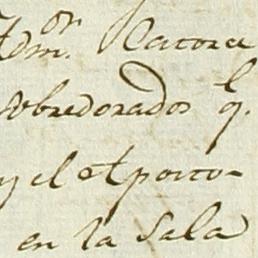 Adm.ᵒʳ Catorce
sobredorados q.ᵉ
y el Aposto-
en la Sala